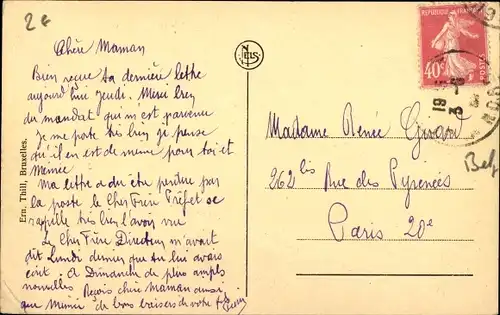 2 €
Chère Maman
Bien reçue ta dernière lettre
aujourd'hui jeudi. Merci bien
du mandat qui m'est parvenue
Je me porte très bien je pense
qu'il en est de meme pour toi et
Mémée
Ma lettre a du être perdue par
la poste le Cher Frère Préfet se
rappelle très bien l'avoir vue
Le Cher Frère Directeur m'avait
dit Lundi dernier que tu lui avais
écrit. A Dimanche de plus amples
nouvelles Reçois chère Maman ainsi
que Mémée de bons baisers de votre fils
Pierre
Ern. Thill, Bruxelles.
NELS
REPUBLIQUE FRANÇAISE
40c
POSTES
19
3
Madame Renée Girard
262 bis Rue des Pyrénées
Paris 20e
Bel